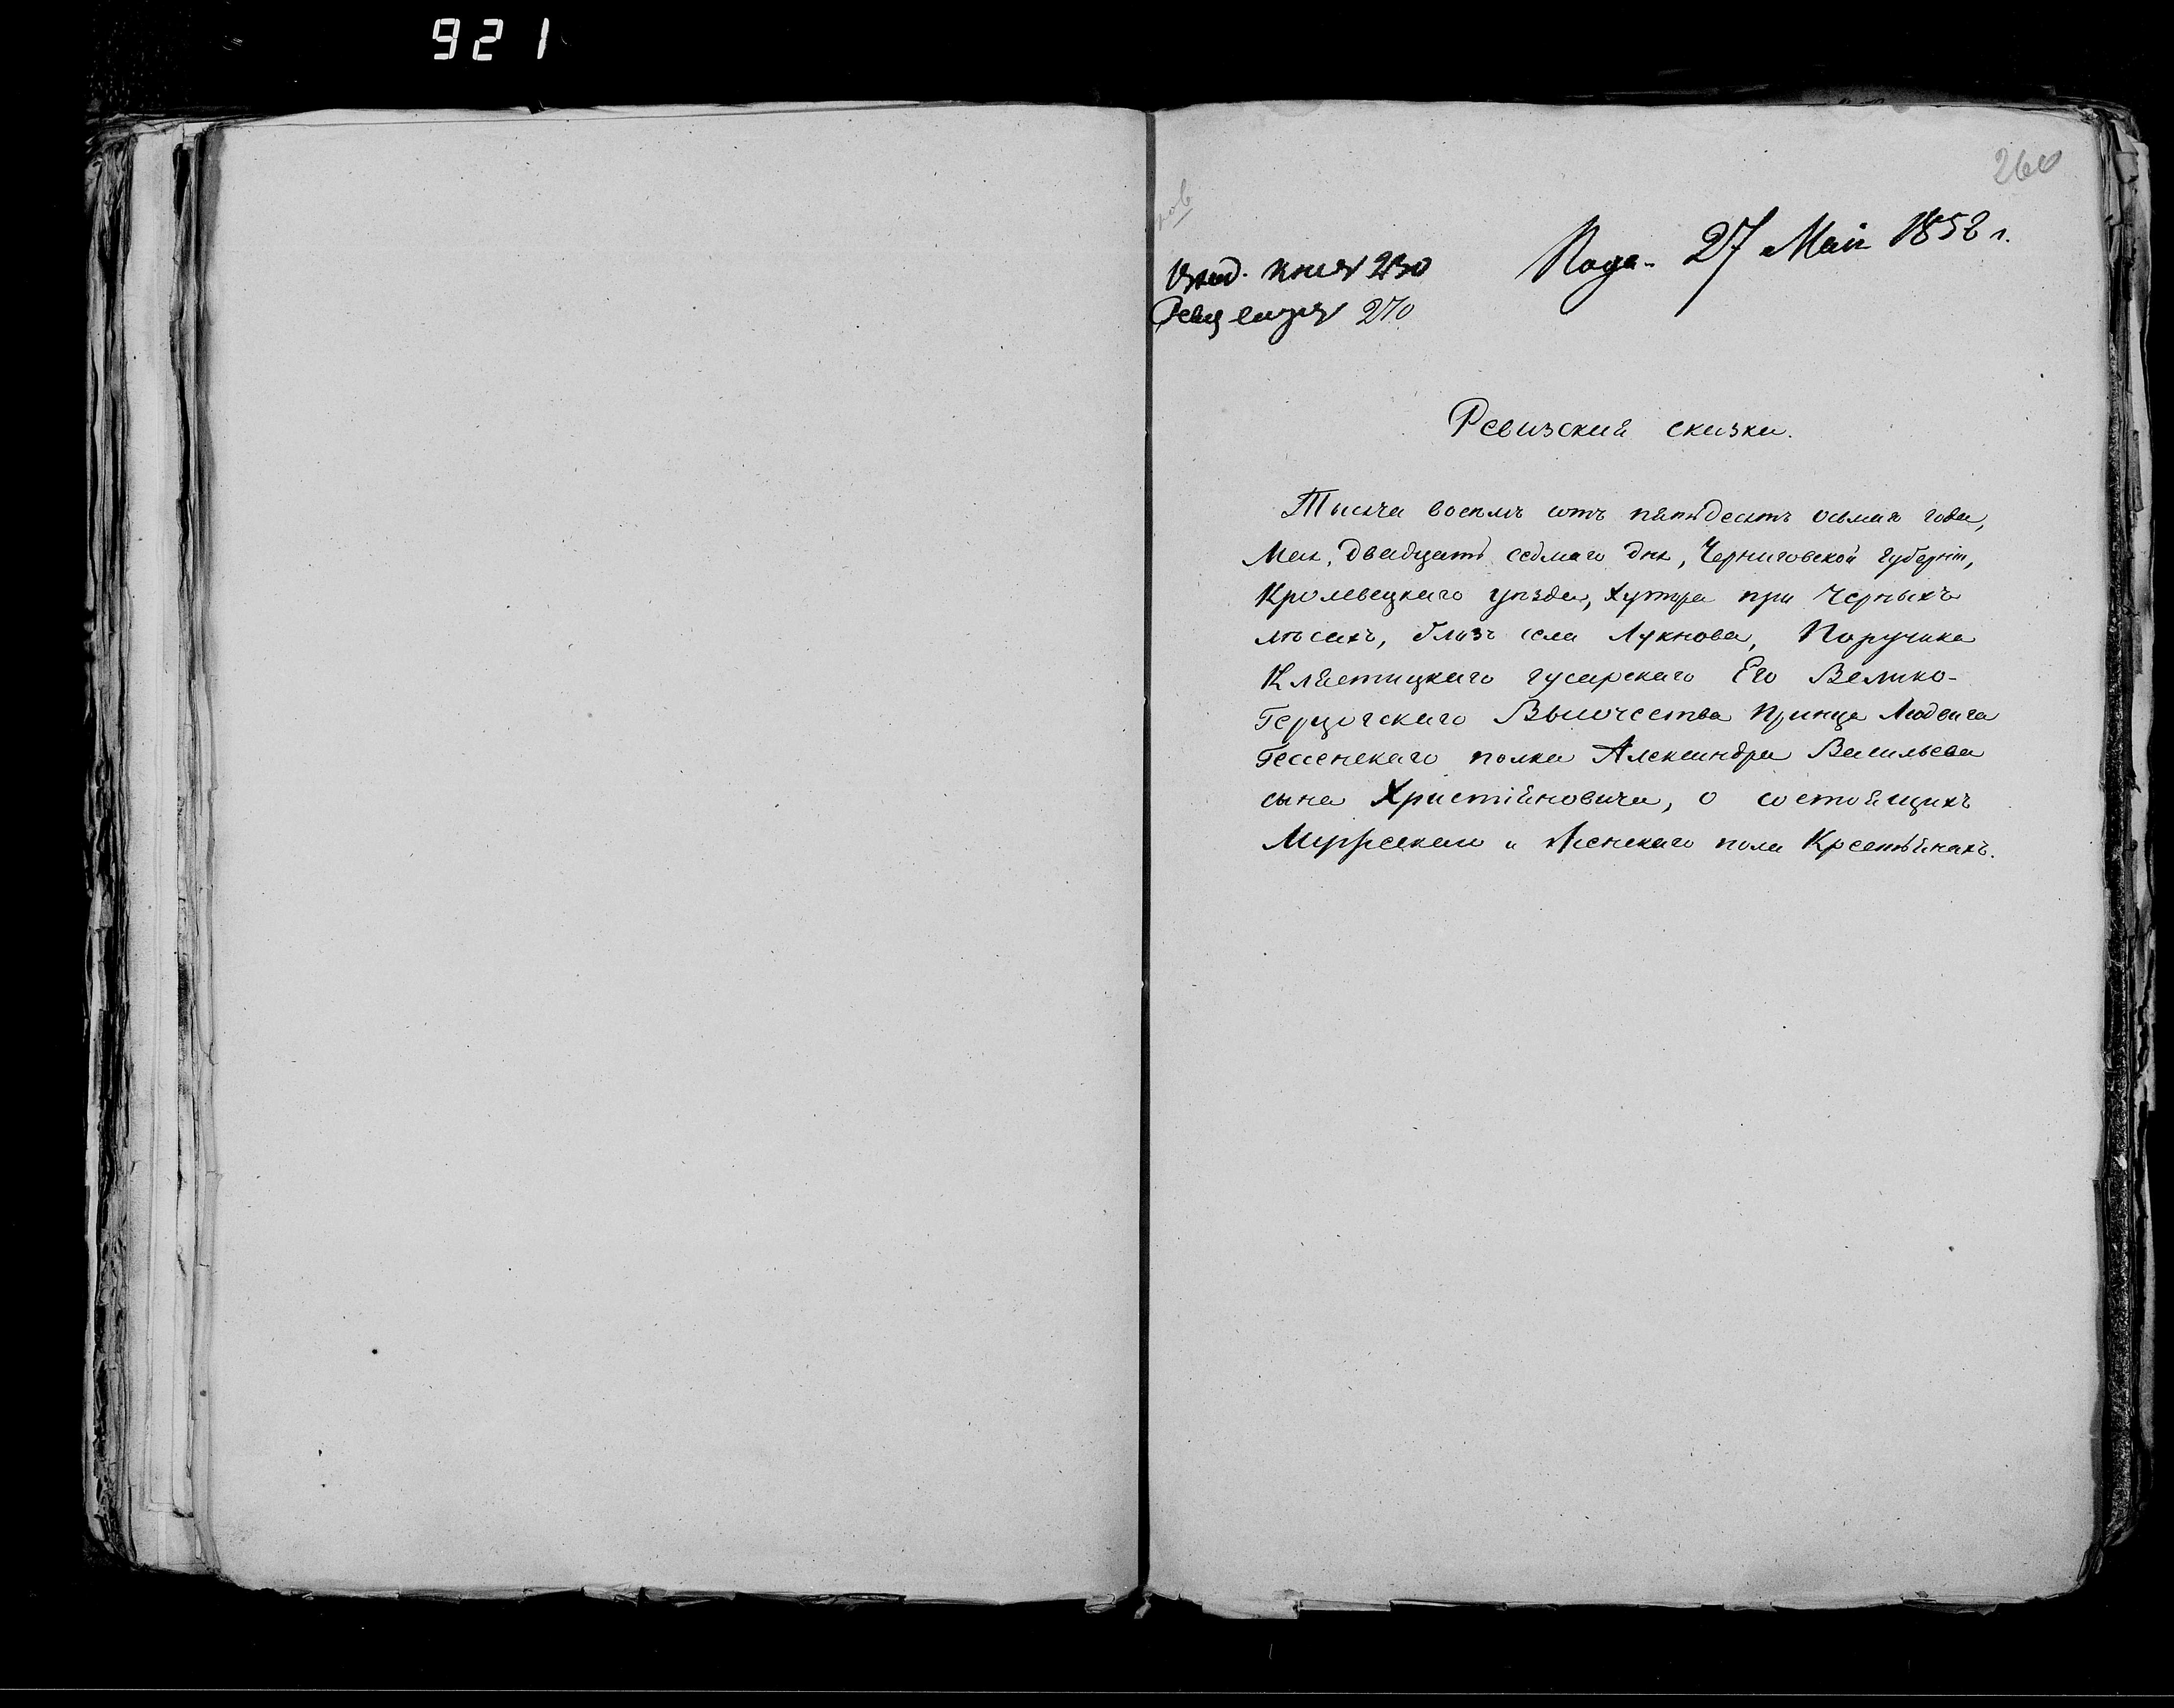 921
260
27 Маія 1858 г.
230
270
Ревизскія сказки.
Тысяча восемь сотъ пятьдесятъ осьмаго года,
Мая, двадцать седмаго дня, Черниговской губерніи,
Кролевецкаго уѣзда, хутора при Черныхъ
лѣсахъ, близъ села Лукнова, Поручика
Клястицкаго гусарскаго Его Велико-
Герцогскаго Высочества Принца Людвига
Гессенскаго полка Александра Васильева
сына Христіяновича, о состоящихъ
Мужескаго и Женскаго пола Крестьянахъ.